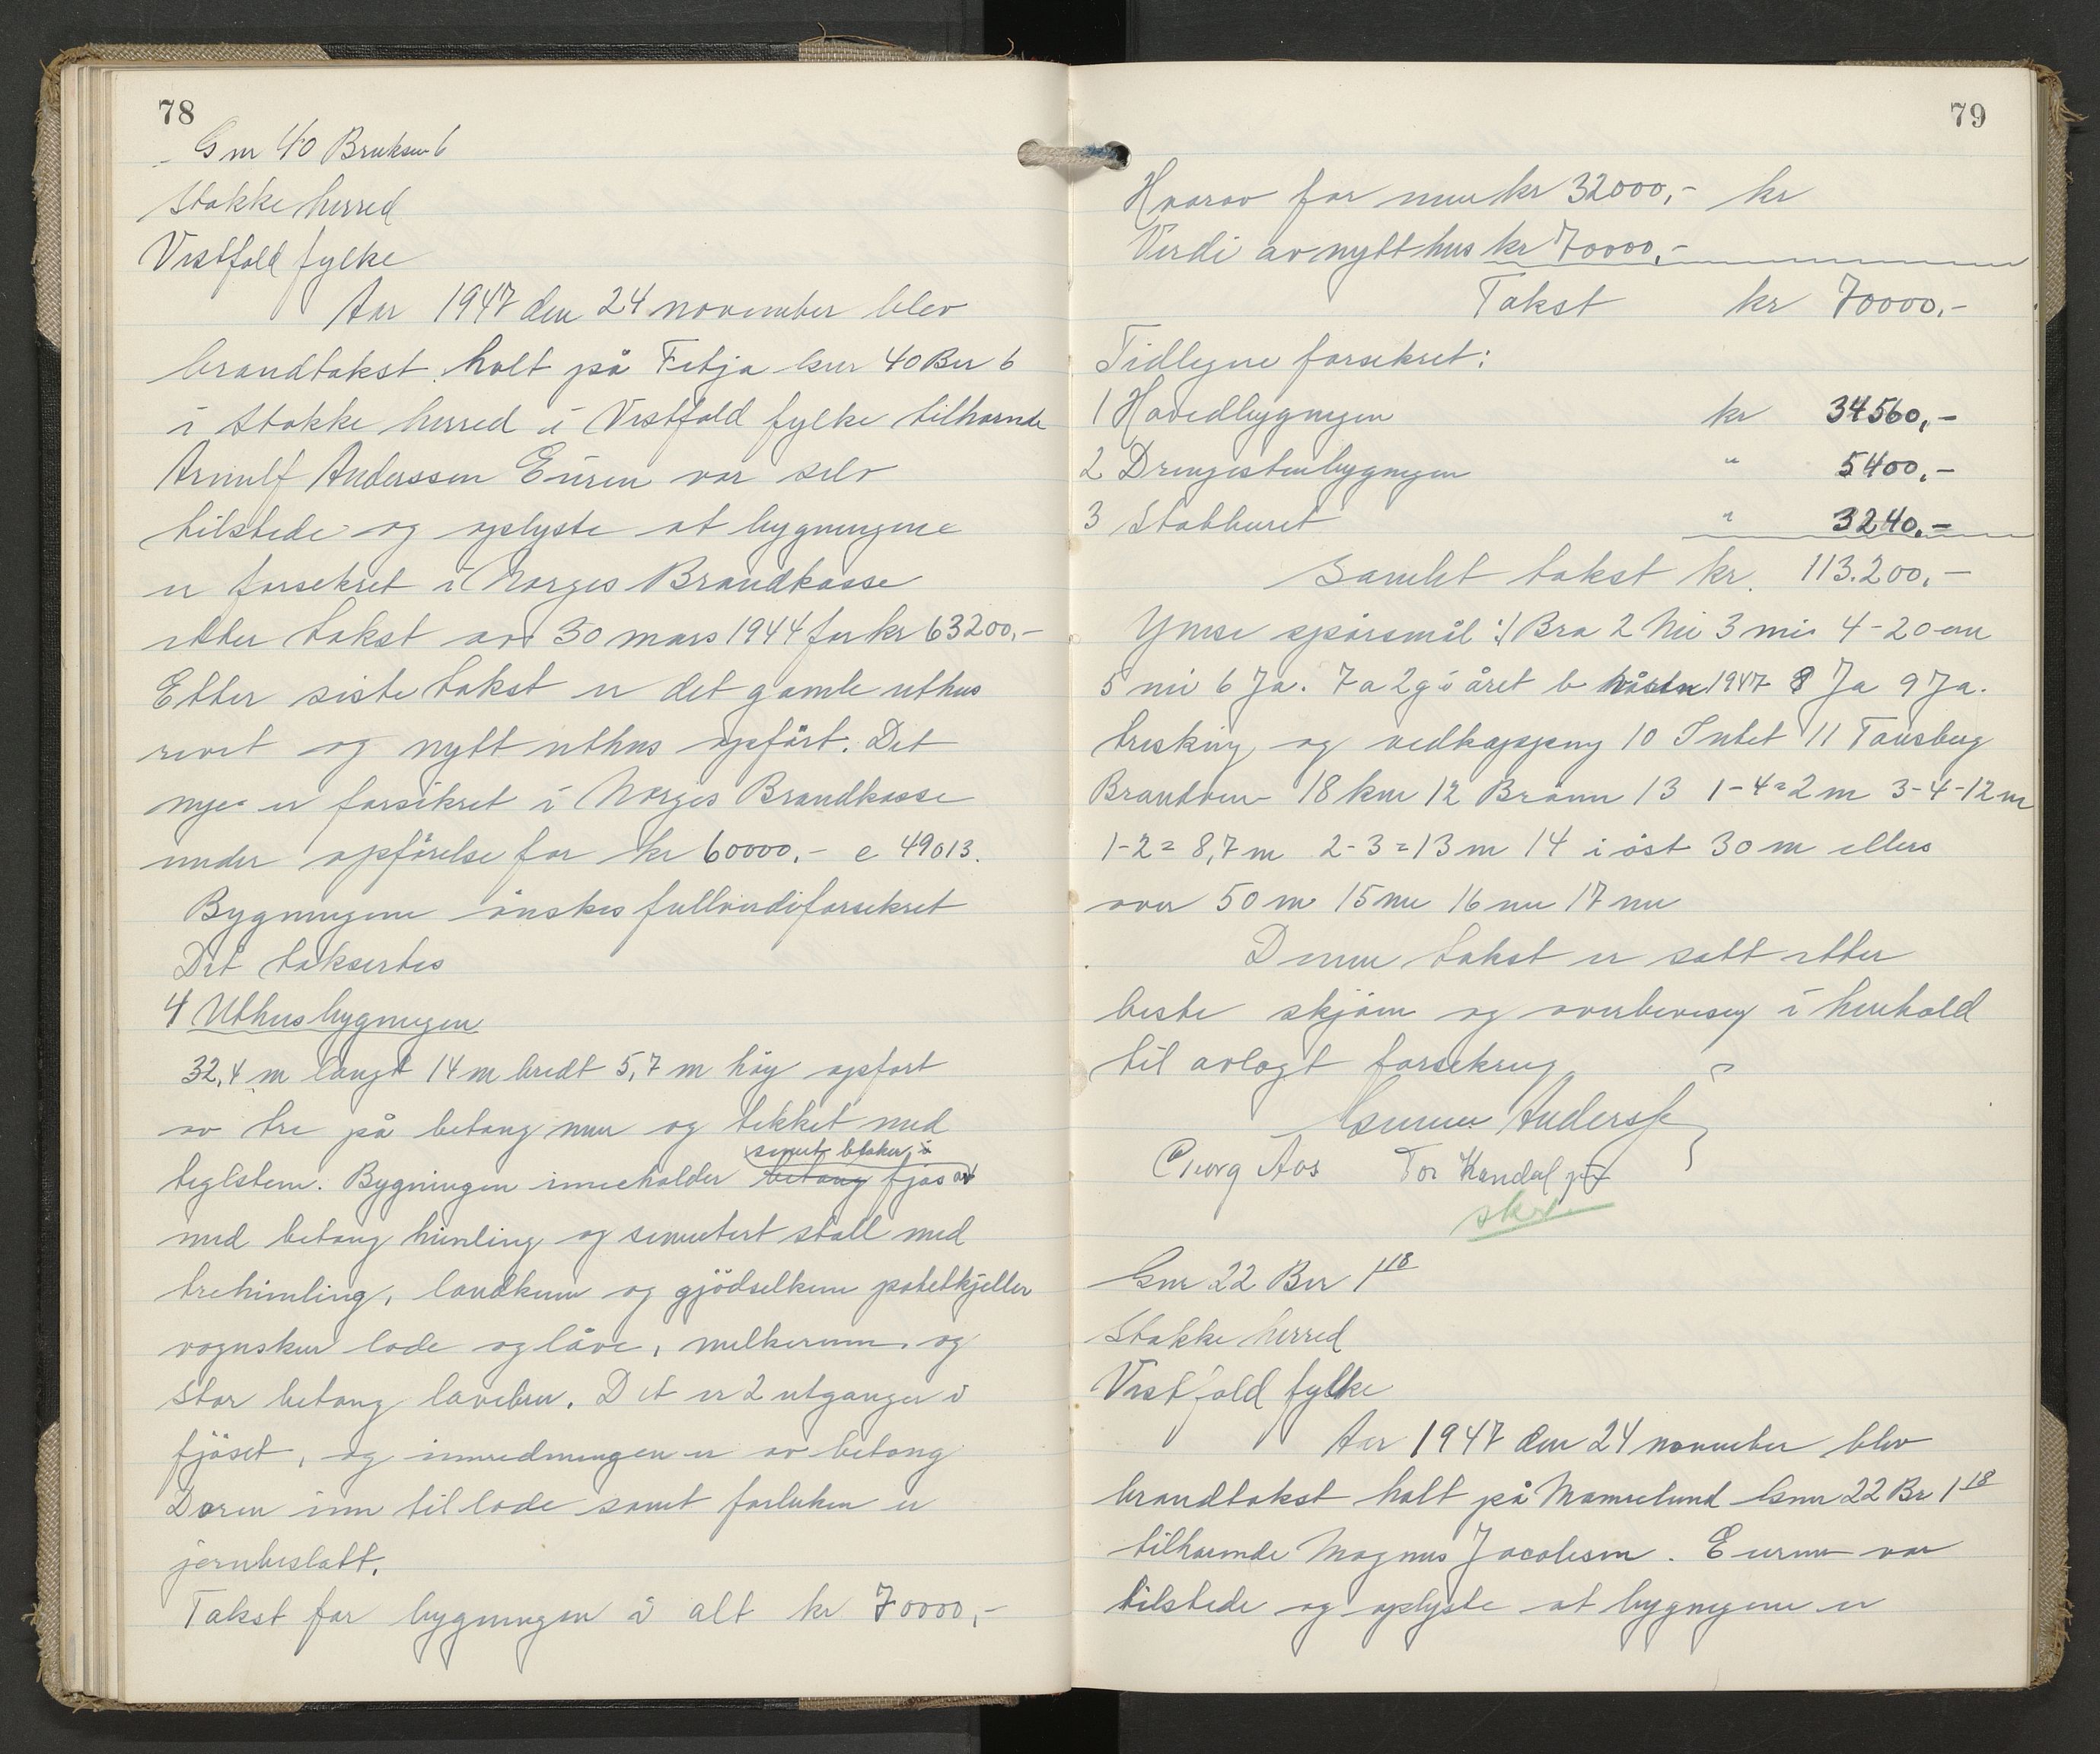 78
Gnr 40 Bruksnr 6
Stokke herred
Vestfold fylke
Aar 1947 den 24 november blev
brandtakst holt på Fetja Gnr 40 Bnr 6
i Stokke herred i Vestfold fylke tilhørnde
Arnulf Anderssen Eieren var selv
tilstede og oplyste at bygningene
er forsekret i Norges Brandkasse
etter takst av 30 mars 1944 for kr 63200,-
Etter siste takst er det gamle uthus
revet og nytt uthus opført. Det
nye er forsikret i Norges Brandkasse
under opførelse for kr 60000,- e 49013.
Bygningene ønskes fullverdiforsekret
Det taksertes
4 Uthusbygningen
32,4 m langt 14 m bredt 5,7 m høy opført
av tre på betong mur og tekket med
sement bloker i
teglsten. Bygningen inneholder betong fjøs
med betong himling og sementert stall med
trehimling, landkum og gjødselkum potetkjeller
vognskur lade og låve, melkerum og
stor betong lavebru. Det er 2 utganger i
fjøset, og innredningen er av betong
Døren inn til lade samt forluken er
jernbeslått.
Takst for bygningen i alt kr 70000,-
79
Hvorav for mur kr 32000,- kr
Verdi av nytt hus kr 70000,-
Takst kr 70000,-
Tidlegere forsekret:
1 Hovedbygningen kr 34560,-
2 Drengestenbygningen " 5400,-
3 Stabburet " 3240,-
Samlet takst kr. 113.200,-
Ymse spørsmål :1 Bra 2 Nei 3 nei 4-20 cm
5 nei 6 Ja. 7 a 2 g i året b høsten 1947 8 Ja 9 Ja.
tresking og vedkapping 10 Intet 11 Tønsberg
Brandven 18 km 12 Brønn 13 1-4=2 m 3-4-12 m
1-2= 8,7 m 2-3=13 m 14 i øst 30 m ellers
over 50 m 15 nei 16 nei 17 nei
Denne takst er satt etter
beste skjøn og overbevisng i henhold
til avlagt forsekring
Anderss
Georg Aas Tor Kandal
skr.
Gnr 22 Bnr 1 18
Stokke herred
Vestfold fylke
Aar 1947 den 24 november blev
brandtakst holt på Gnr 22 Br 1 18
tilhørnde Magnus Jacobsen. Eieren var
tilstede og oplyste at bygningene er